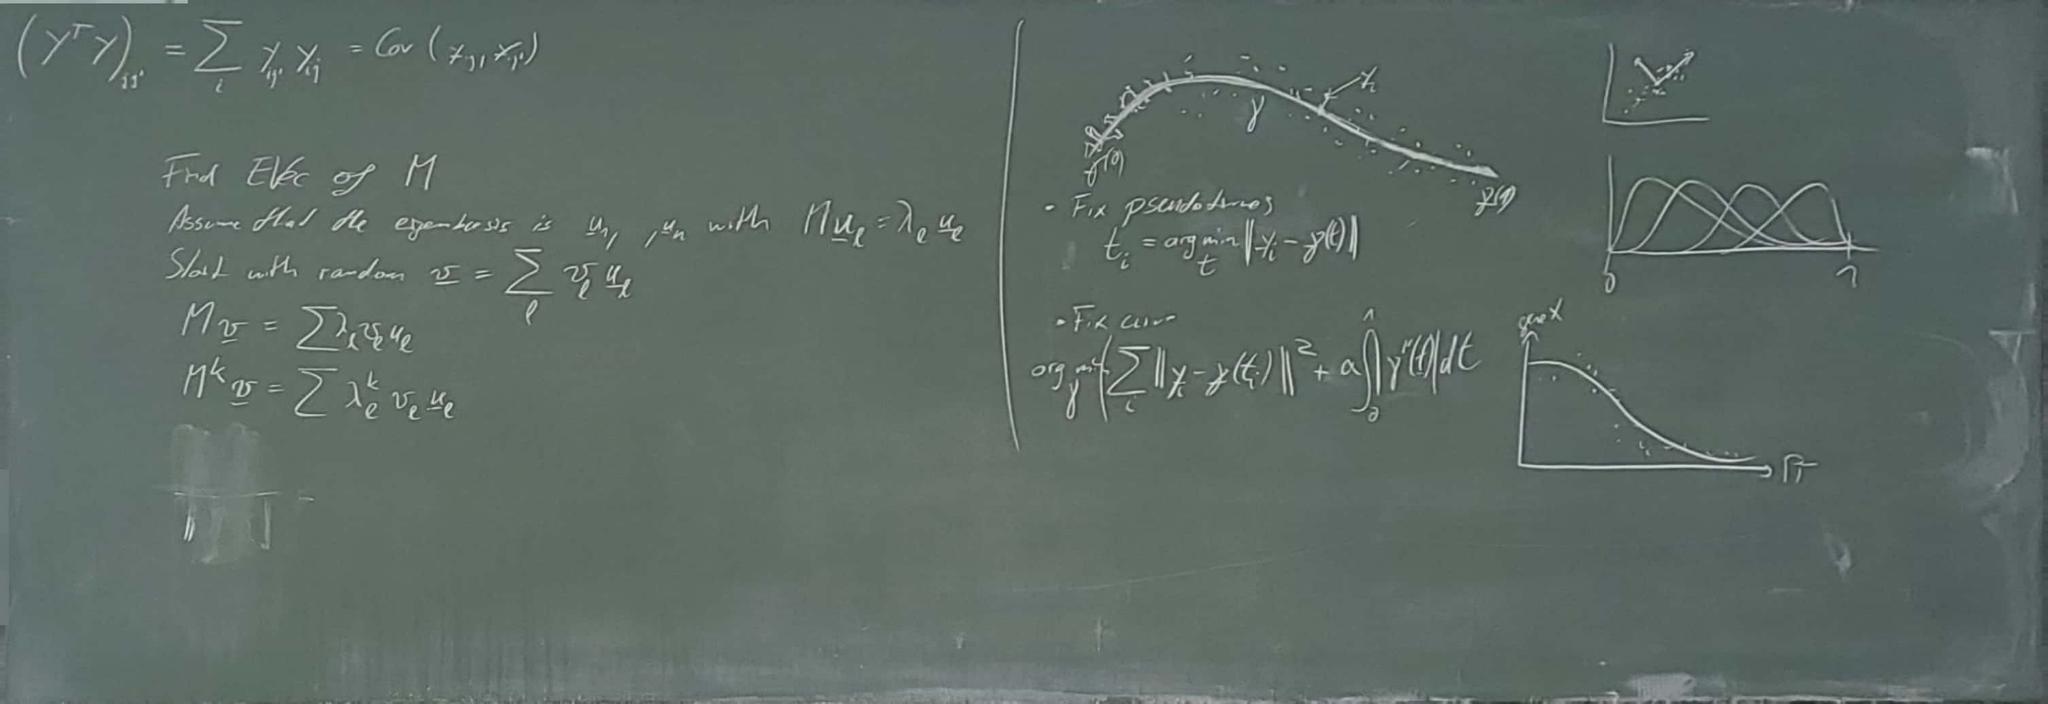 (YᵀY)ⱼⱼ' = ∑ᵢ yᵢⱼ' yᵢⱼ = Cov(
Find EVec of M
Assume that the eigenbasis is u₁, , uₙ with M u_ℓ = λ_ℓ u_ℓ
Start with random v = ∑_ℓ v_ℓ u_ℓ
M v = ∑ λ_ℓ v_ℓ u_ℓ
Mᵏ v = ∑ λ_ℓᵏ v_ℓ u_ℓ
γ
γ(0)
γ(1)
• Fix pseudotimes
tᵢ = arg min_t ‖yᵢ − γ(t)‖
• Fix curve
arg min_γ ( ∑ᵢ ‖yᵢ − γ(tᵢ)‖² + a ∫₀¹ |γ''(t)| dt
0 1
gene X
PT